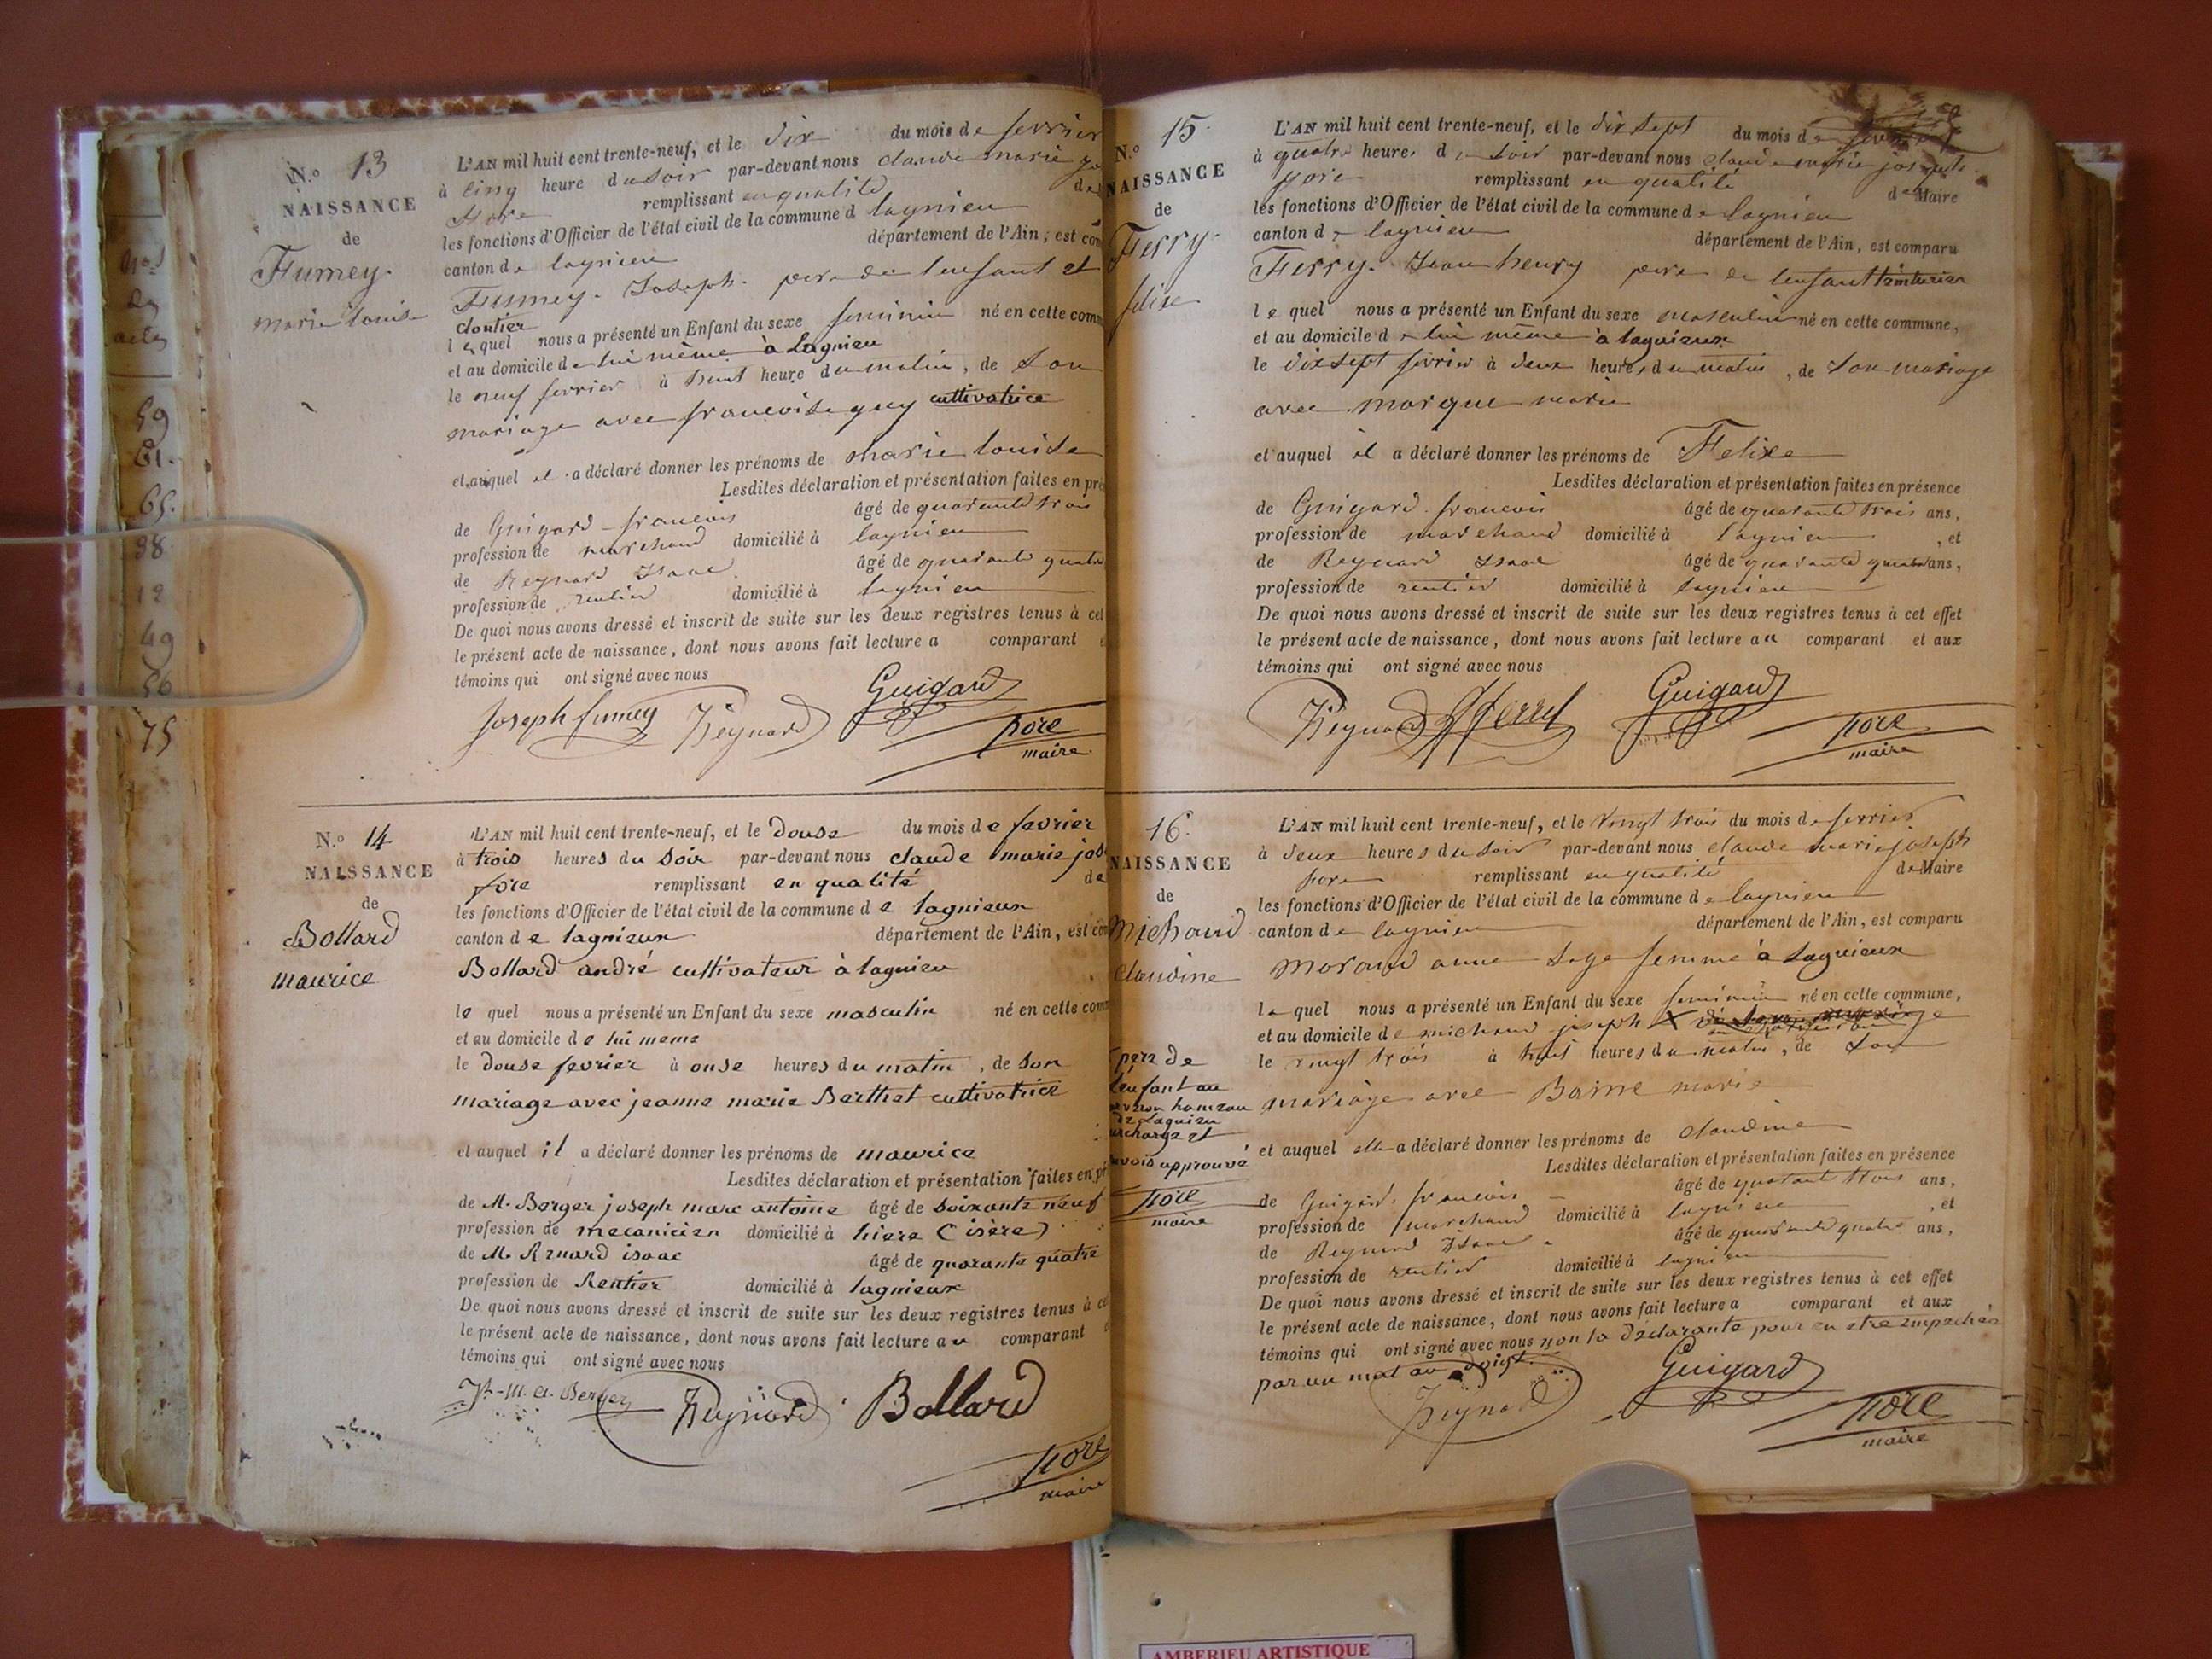 nos
des
actes
59
61.
65.
98
12
49
56
75
N.o 13
NAISSANCE
de
Fumey.
marie louise
L'AN mil huit cent trente-neuf, et le dix du mois de fevrier
à cinq heure du soir par-devant nous claude marie
fore remplissant en qualité de
les fonctions d'Officier de l'état civil de la commune d lagnieu
canton de lagnieu département de l'Ain, est com
Fumey. Joseph. pere de l'enfant et
cloutier
le quel nous a présenté un Enfant du sexe feminin né en cette comm
et au domicile de lui même à Lagnieu
le neuf fevrier à huit heure du matin, de son
mariage avec francoise guy cultivatrice
et auquel il a déclaré donner les prénoms de marie louise
Lesdites déclaration et présentation faites en pré
de Guigard francois âgé de quarante trois
profession de marchand domicilié à lagnieu
de Reynard Isaac âgé de quarante quatre
profession de rentier domicilié à lagnieu
De quoi nous avons dressé et inscrit de suite sur les deux registres tenus à cet
le présent acte de naissance, dont nous avons fait lecture a comparant
témoins qui ont signé avec nous
Joseph fumey Reynard Guigard
fore
maire
N.o 14
NAISSANCE
de
Bollard
maurice
L'AN mil huit cent trente-neuf, et le douse du mois de fevrier
à trois heures du soir par-devant nous claude marie jos
fore remplissant en qualité de
les fonctions d'Officier de l'état civil de la commune de lagnieux
canton de lagnieux département de l'Ain, est com
Bollard andré cultivateur à lagnieu
le quel nous a présenté un Enfant du sexe masculin né en cette comm
et au domicile de lui meme
le douse fevrier à onse heures du matin, de son
mariage avec jeanne marie Berthet cultivatrice
et auquel il a déclaré donner les prénoms de maurice
Lesdites déclaration et présentation faites en pr
de M. Berger joseph marc antoine âgé de soixante neuf
profession de mecanicien domicilié à hiere (isère)
de M. Renard isaac âgé de quarante quatre
profession de Rentier domicilié à lagnieux
De quoi nous avons dressé et inscrit de suite sur les deux registres tenus à ce
le présent acte de naissance, dont nous avons fait lecture au comparant
témoins qui ont signé avec nous
Jh-M. a. Berger Reynard Bollard
fore
maire
N.o 15
NAISSANCE
de
Ferry
felixe
L'AN mil huit cent trente-neuf, et le dix sept du mois de
à quatre heures du soir par-devant nous claude marie joseph
fore remplissant en qualité de Maire
les fonctions d'Officier de l'état civil de la commune de lagnieu
canton de lagnieu département de l'Ain, est comparu
Ferry. Jean henry pere de l'enfant teinturier
le quel nous a présenté un Enfant du sexe masculin né en cette commune,
et au domicile de lui même à lagnieux
le dix sept fevrier à deux heures du matin, de son mariage
avec marque marie
et auquel il a déclaré donner les prénoms de Felixe
Lesdites déclaration et présentation faites en présence
de Guigard francois âgé de quarante trois ans,
profession de marchand domicilié à lagnieu, et
de Reynard Isaac âgé de quarante quatre ans,
profession de rentier domicilié à lagnieu
De quoi nous avons dressé et inscrit de suite sur les deux registres tenus à cet effet
le présent acte de naissance, dont nous avons fait lecture au comparant et aux
témoins qui ont signé avec nous
Reynard Ferry Guigard
fore
maire
16.
NAISSANCE
de
Michaud
claudine
L'AN mil huit cent trente-neuf, et le vingt trois du mois de fevrier
à deux heures du soir par-devant nous claude marie joseph
fore remplissant en qualité de Maire
les fonctions d'Officier de l'état civil de la commune de lagnieu
canton de lagnieu département de l'Ain, est comparu
Morand anne sage femme à Lagnieux
la quel nous a présenté un Enfant du sexe feminin né en cette commune,
et au domicile de michaud joseph X
le vingt trois à huit heures du matin, de son
mariage avec Barne marie
et auquel elle a déclaré donner les prénoms de claudine
Lesdites déclaration et présentation faites en présence
de Guigard francois âgé de quarante trois ans,
profession de marchand domicilié à lagnieu, et
de Reynard Isaac âgé de quarante quatre ans,
profession de rentier domicilié à lagnieu
De quoi nous avons dressé et inscrit de suite sur les deux registres tenus à cet effet
le présent acte de naissance, dont nous avons fait lecture a comparant et aux
témoins qui ont signé avec nous non la déclarante pour en etre empechée
par un mal au doigt.
Reynard Guigard
fore
maire
pere de
l'enfant au
hameau
de Lagnieu
urcharge et
approuvé
fore
maire
AMBERIEU ARTISTIQUE